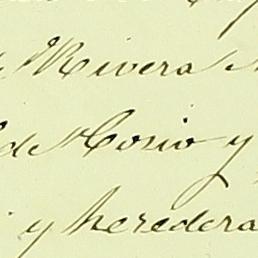 Rivera
de Cosio y
y heredera